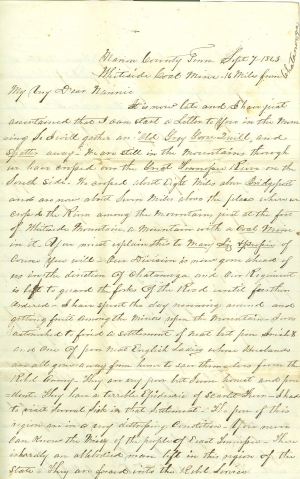 Marion County Tenn Sept 7. 1863
Whiteside Coal Mine - 16 Miles from Chatanooga
My Very Dear Nannie
It is now late and I have just
ascertained that I can start a Letter to you in the Morn
ing So I will gather an "Old Grey Goose Quill, and
Spatter away". We are still in the Mountains though
we have crossed the Great Tennessee River on the
South Side. We crossed about Eight Miles above Bridgeport
and are now about Seven Miles above the place where we
crossed the River among the Mountains just at the foot
of Whiteside Mountain, a Mountain with a Coal Mine
in it. of
Course you will - Our Division is now gone ahead of
us in the direction of Chatanooga and Our Regiment
is left to guard the forks of the Road until further
orders - I have spent the day around and
getting fruit among the Miners upon the Mountain. I was
astonished to find a settlement of neat but poor Irish &
and One of poor neat English Ladies whose Husbands
are all gone away from home to save themselves from the
Rebel Army. They are very poor but seem honest and
They have a terrible Epidemic of Scarlet Fever. I had
to visit Several Sick in that Settlement - The poor of this
region are in a very Condition - You never
can Know the Misery of the people of East Tennessee - There
is hardly an ablebodied man left in this region of the
State. They are forced into the Rebel Service